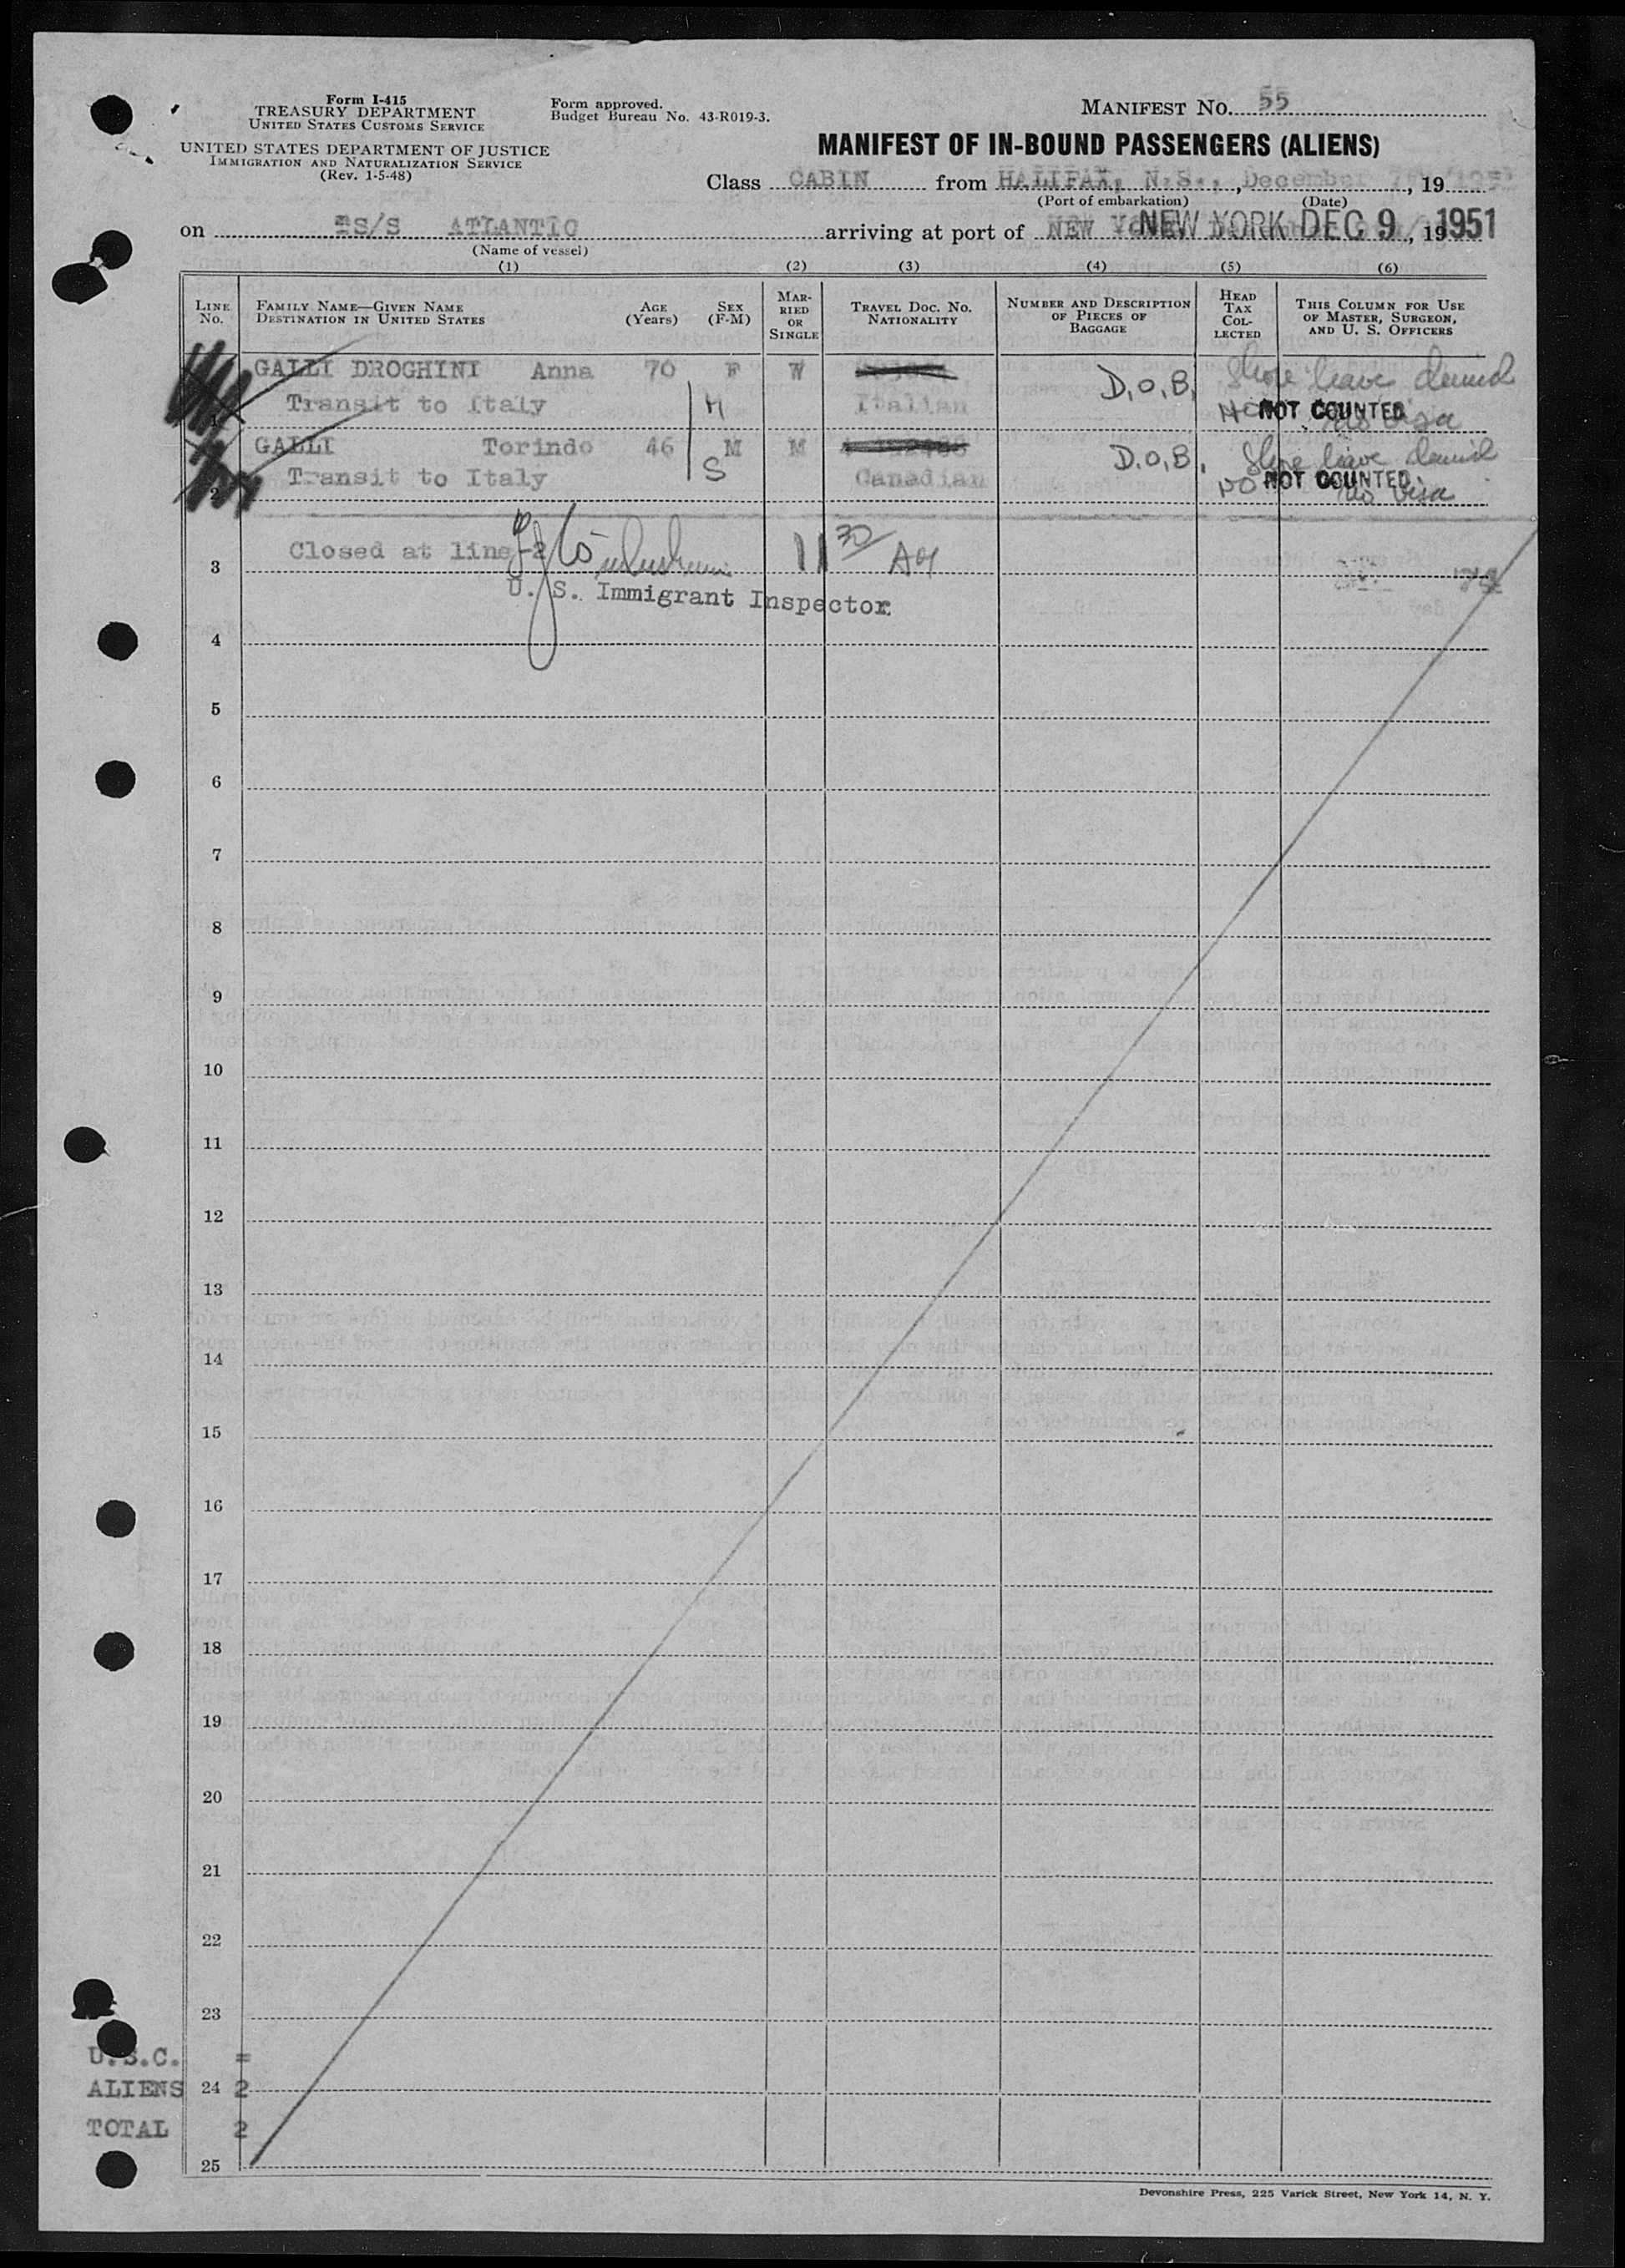 Form I-415
TREASURY DEPARTMENT
UNITED STATES CUSTOMS SERVICE
UNITED STATES DEPARTMENT OF JUSTICE
IMMIGRATION AND NATURALIZATION SERVICE
(Rev. 1-5-48)
Form approved.
Budget Bureau No. 43-R019-3.
MANIFEST NO. 55
MANIFEST OF IN-BOUND PASSENGERS (ALIENS)
Class CABIN from HALIFAX, N.S., December 7th, 19
(Port of embarkation) (Date)
on S/S ATLANTIC arriving at port of NEW YORK NEW YORK DEC 9, 19 1951
(Name of vessel)
(1) (2) (3) (4) (5) (6)
LINE NO.
FAMILY NAME—GIVEN NAME
DESTINATION IN UNITED STATES
AGE (Years)
SEX (F-M)
MARRIED OR SINGLE
TRAVEL DOC. NO.
NATIONALITY
NUMBER AND DESCRIPTION OF PIECES OF BAGGAGE
HEAD TAX COLLECTED
THIS COLUMN FOR USE OF MASTER, SURGEON, AND U. S. OFFICERS
GALLI DROGHINI Anna 70 F W D.O.B. Shore leave denied
1 Transit to Italy M Italian NOT COUNTED no visa
GALLI Torindo 46 M M D.O.B. Shore leave denied
2 Transit to Italy S Canadian NO NOT COUNTED no visa
3 Closed at line-2 11 30 AM
U. S. Immigrant Inspector
4
5
6
7
8
9
10
11
12
13
14
15
16
17
18
19
20
21
22
23
U.S.C. =
ALIENS 24 2
TOTAL 2
25
Devonshire Press, 225 Varick Street, New York 14, N. Y.